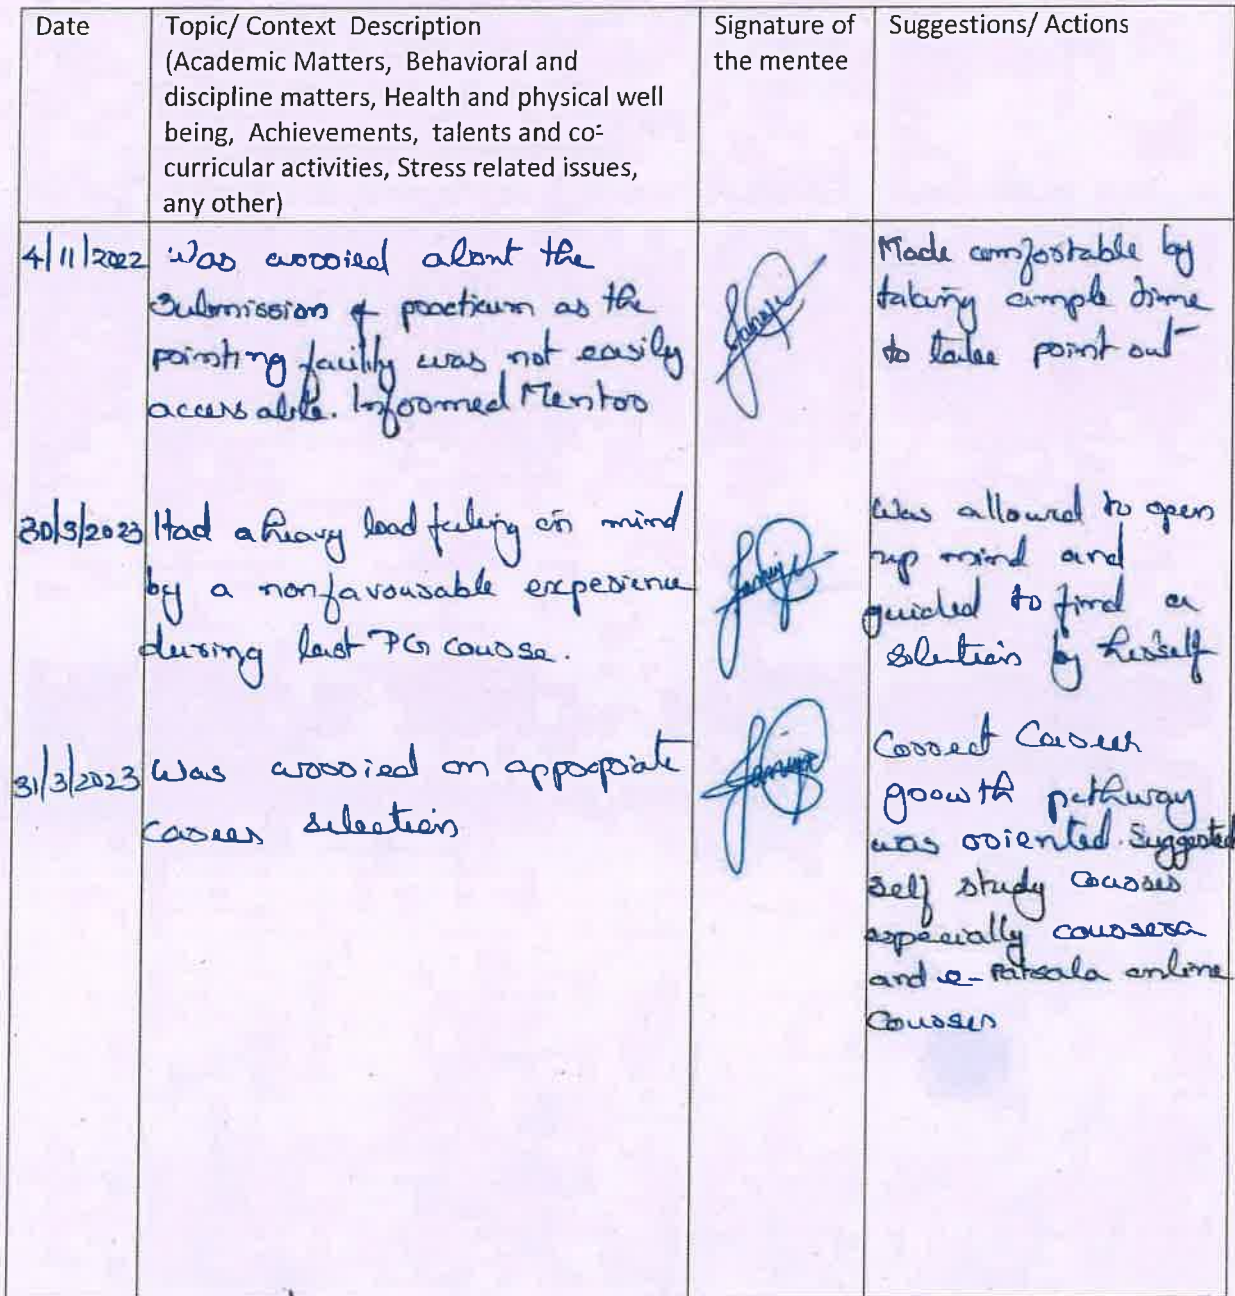 Date
Topic/ Context Description
(Academic Matters, Behavioral and
discipline matters, Health and physical well
being, Achievements, talents and co-
curricular activities, Stress related issues,
any other)
Signature of
the mentee
Suggestions/ Actions
4/11/2022
Was worried about the
Submission of practicum as the
printing facility was not easily
accessable. Informed Mentor
Made comfortable by
taking ample time
to take print out
30/3/2023
Had a heavy load feeling in mind
by a nonfavourable experience
during last PG course.
Was allowed to open
up mind and
guided to find a
solution by
31/3/2023
Was worried on appropriate
career selection
Correct Career
growth pathway
was oriented. Suggested
self study courses
especially coursera
and e-Patsala online
Courses